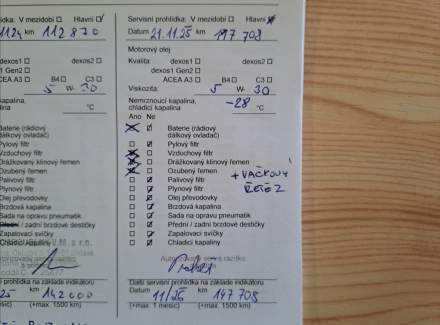 Servisní prohlídka: V mezidobí Hlavní
Datum 21.11.25 km 147 708
Motorový olej
Kvalita dexos1 dexos2
dexos1 Gen2
ACEA A3 B4 C3
Viskozita 5 W- 30
Nemrznoucí kapalina, -28 °C
chladicí kapaliny
Ano Ne
Baterie (rádiový
dálkový ovladač)
Pylový filtr
Vzduchový filtr
Drážkovaný klínový řemen
Ozubený řemen + VAČKOVÝ
Palivový filtr ŘETĚZ
Plynový filtr
Olej převodovky
Brzdová kapalina
Sada na opravu pneumatik
Přední / zadní brzdové destičky
Zapalovací svíčky
Chladicí kapaliny
Autorizovaný servis razítko
Další servisní prohlídka na základě indikátoru
Datum 11/25 147 708
(+max. 1 měsíc) (+max. 1500 km)
lídka: V mezidobí Hlavní
km 112 870
dexos1 dexos2
1 Gen2
ACEA A3 B4 C3
5 W- 30
°C
Baterie (rádiový
dálkový ovladač)
Pylový filtr
Vzduchový filtr
Drážkovaný klínový řemen
Ozubený řemen
Palivový filtr
Plynový filtr
Olej převodovky
Brzdová kapalina
Sada na opravu pneumatik
Přední / zadní brzdové destičky
Zapalovací svíčky
Chladicí kapaliny
prohlídka na základě indikátoru
142000
(+max. 1500 km)